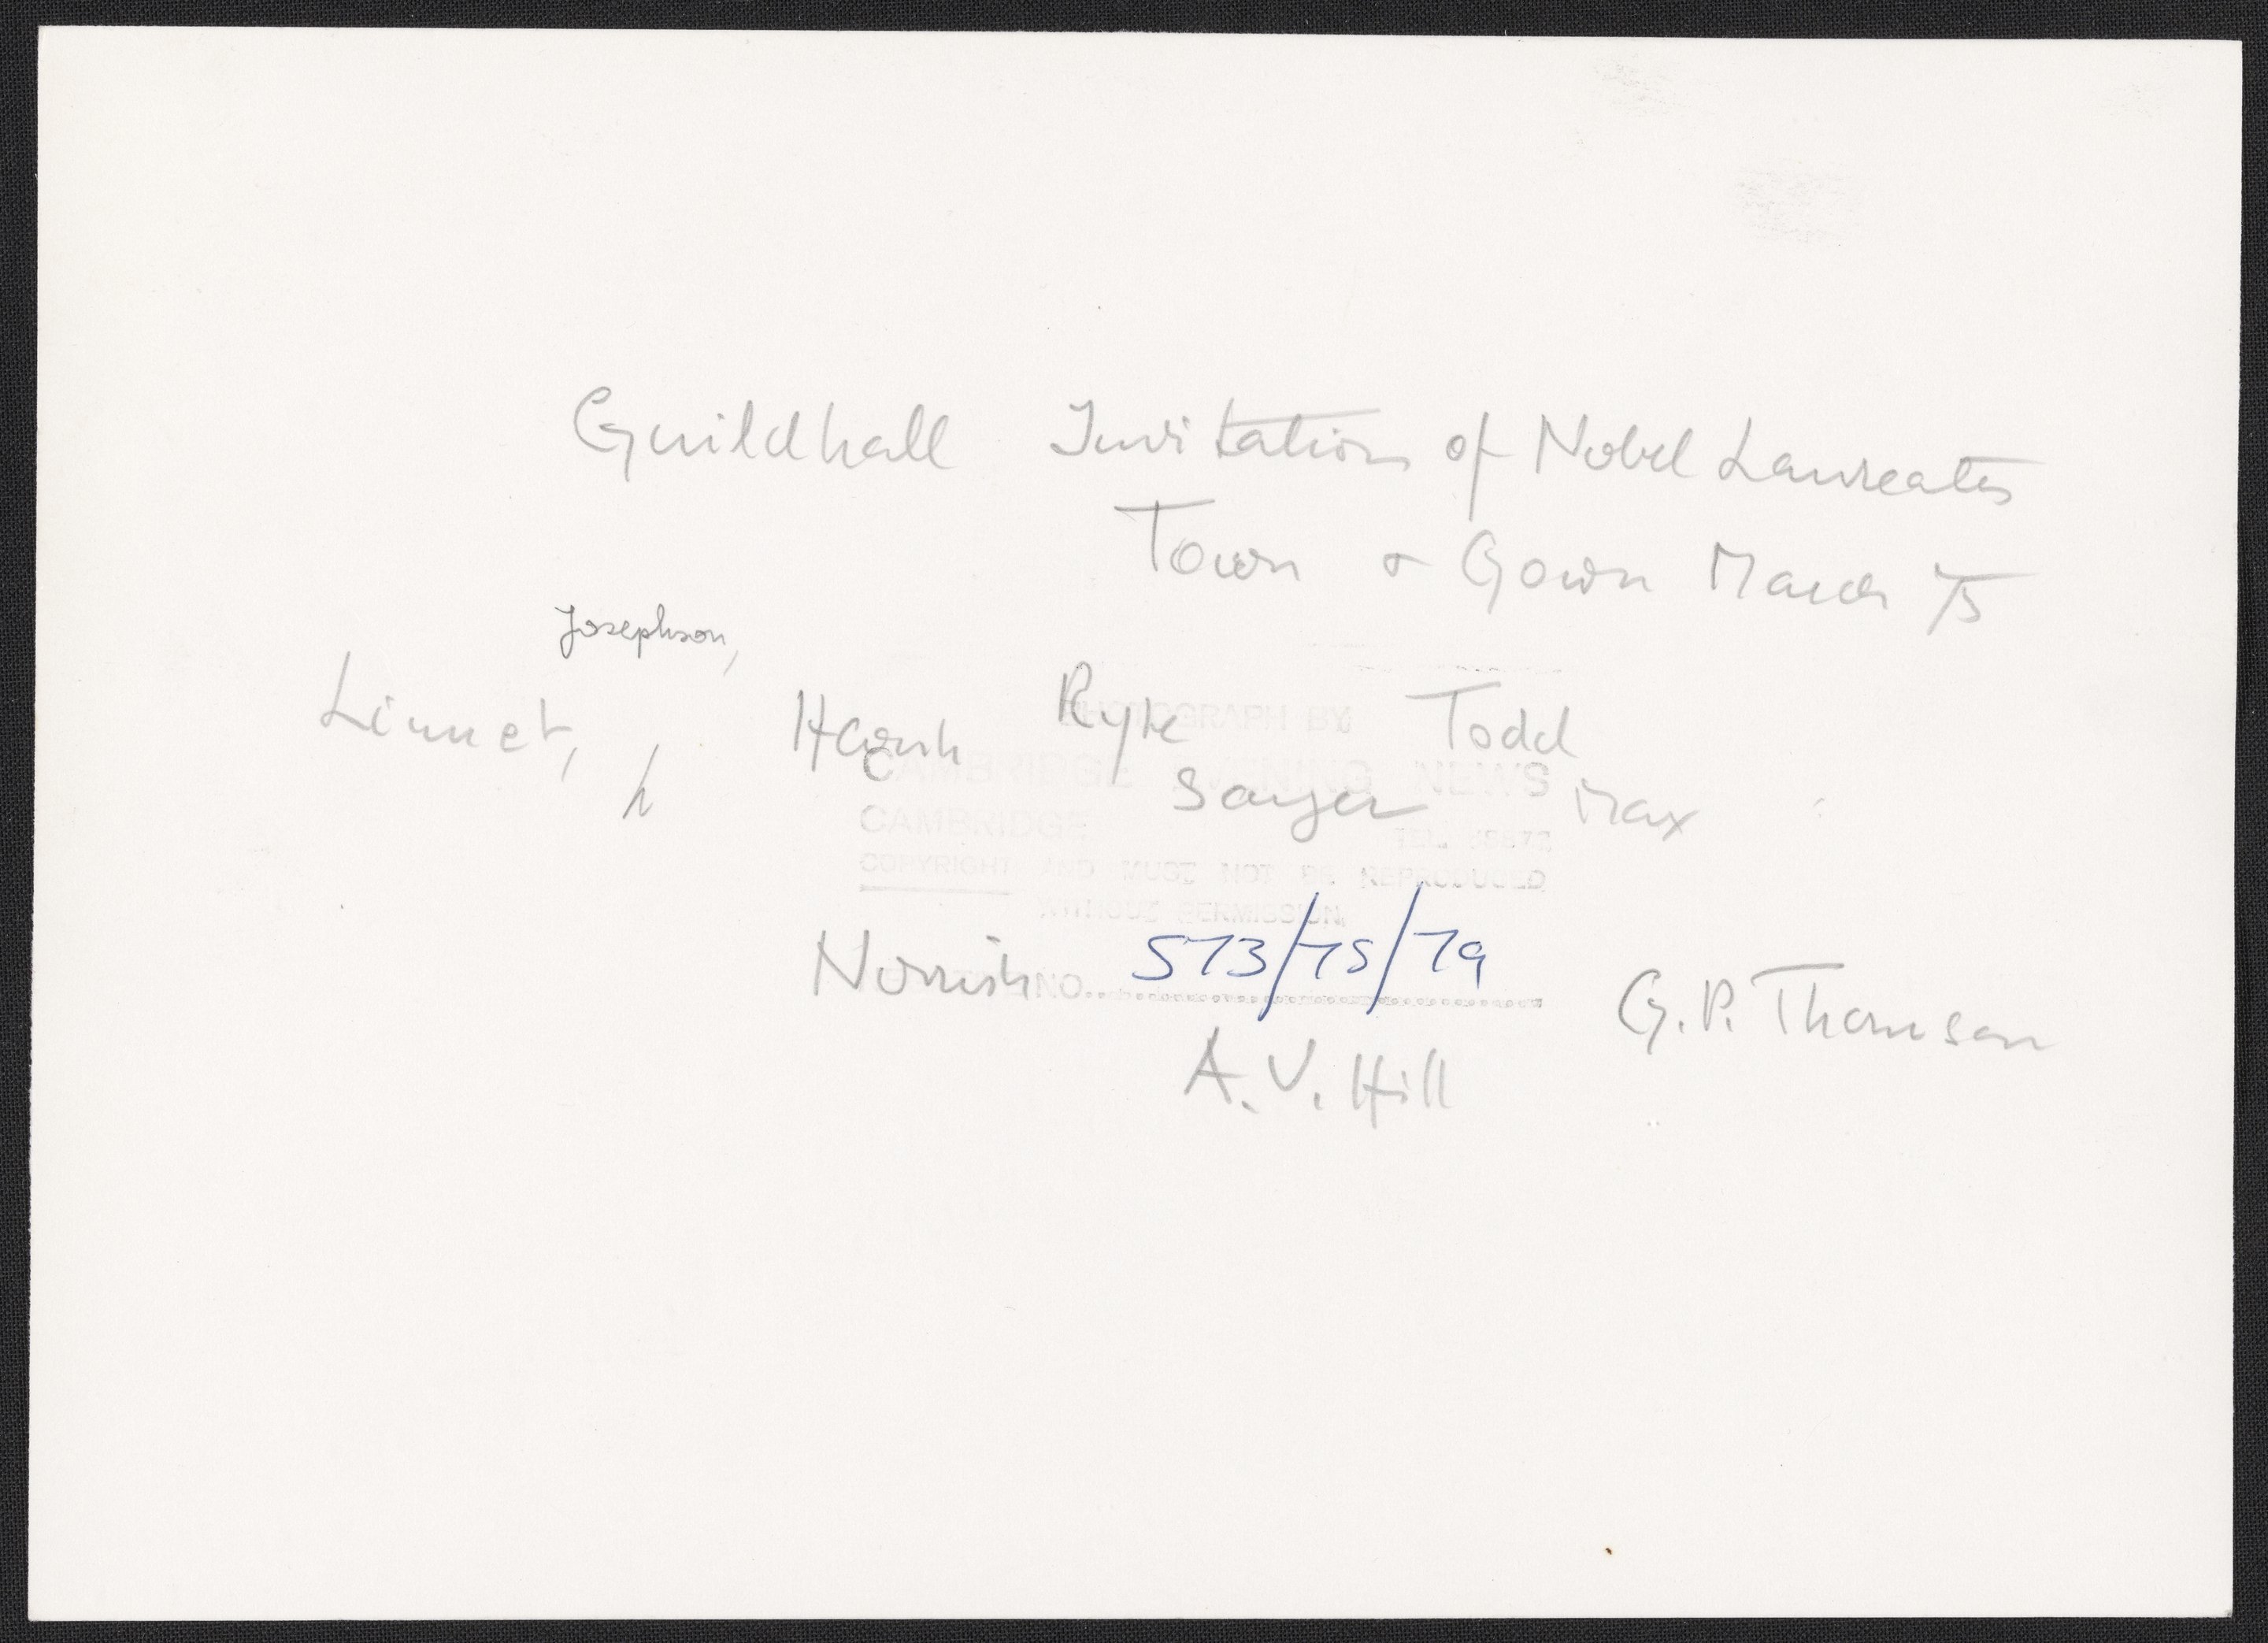 Guildhall Invitation of Nobel Laureates
Town & Gown March 75
Josephson,
Linnet, Ryle Todd
h Sanger Max
PHOTOGRAPH BY
CAMBRIDGE EVENING NEWS
CAMBRIDGE TEL.
COPYRIGHT AND MUST NOT BE REPRODUCED
WITHOUT PERMISSION.
Norrish NO. 573/75/79 G.P. Thomson
A.V. Hill